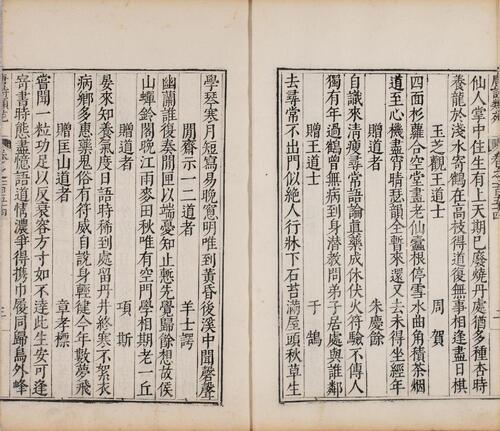 仙人掌中住生有上天期已廢燒丹處猶多種杏時
養龍於淺水寄鶴在高枝得道復無事相逢盡日棋
玉芝觀王道士 周賀
四面杉蘿合空堂畫老仙蠹根停雪水曲角積茶烟
道至心機盡宵晴瑟韻全暫來還又去未得坐經年
朱慶餘
自識來清瘦尋常語論真藥成休伏火符驗不傳人
獨有年過鶴曾無病到身潛教問弟子居處與誰鄰
贈王道士 于鵠
去尋常不出門似絕人行牀下石苔滿屋頭秋草生
學琴寒月短寫易晚窻明唯到黃昏後溪中聞磬聲
閒齋示一二道者 羊士諤
幽蘭誰復奏閒匣以端憂知止慙先覺歸餘想故侯
山蟬鈴閣晚江雨麥田秋唯有空門學相期老一丘
贈道者 項斯
晏來知養氣度日語時稀到處留丹井終寒不絮衣
病鄉多惠藥鬼俗有符威自說身輕健今年數夢飛
贈匡山道者 章孝標
嘗聞一粒功足以反衰容方寸如不達此生安可逢
寄書時態盡憶語道情濃爭得携巾屨同歸鳥外峰